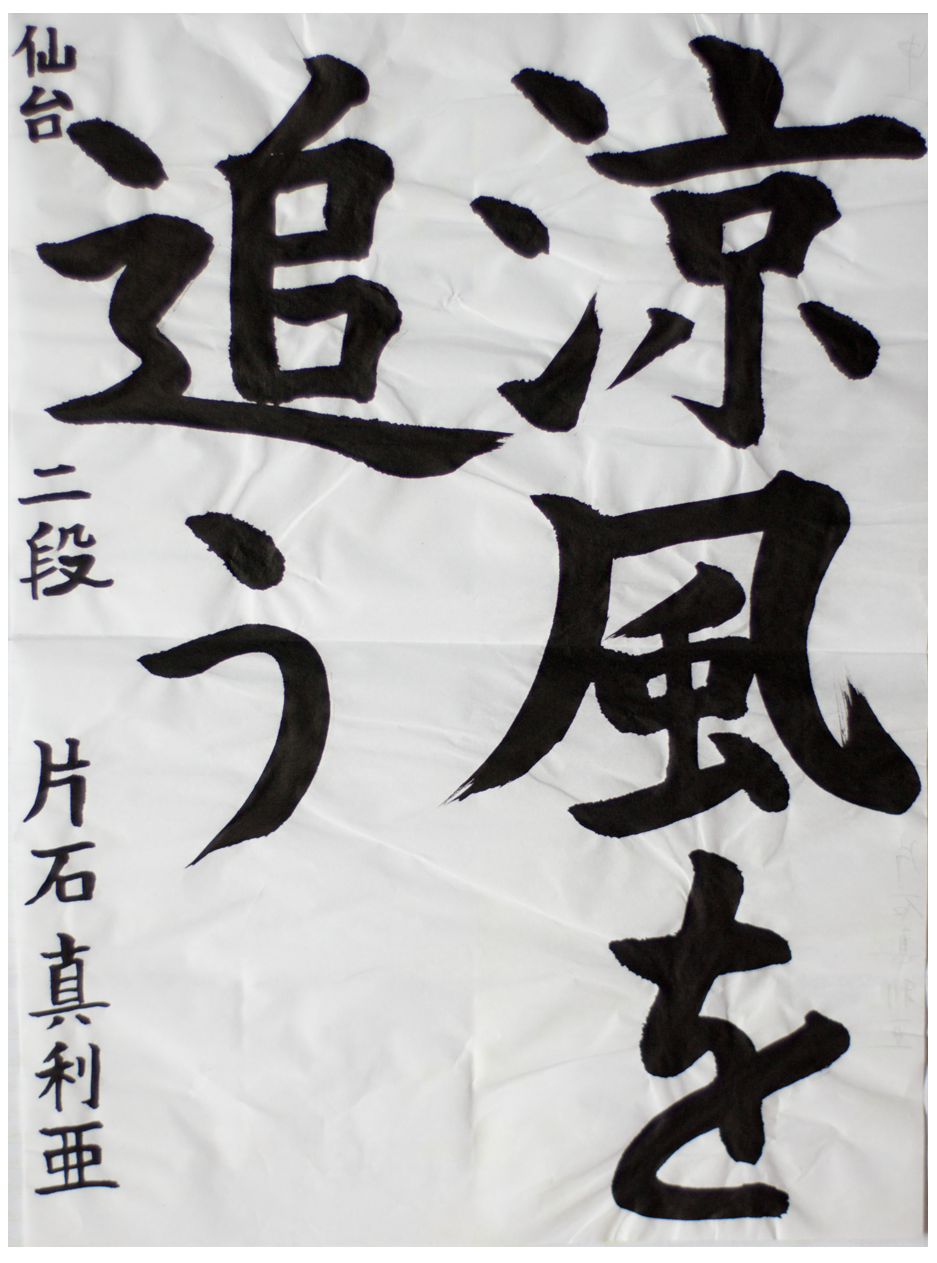 涼風を
追う
仙台 二段 片石 真利亜